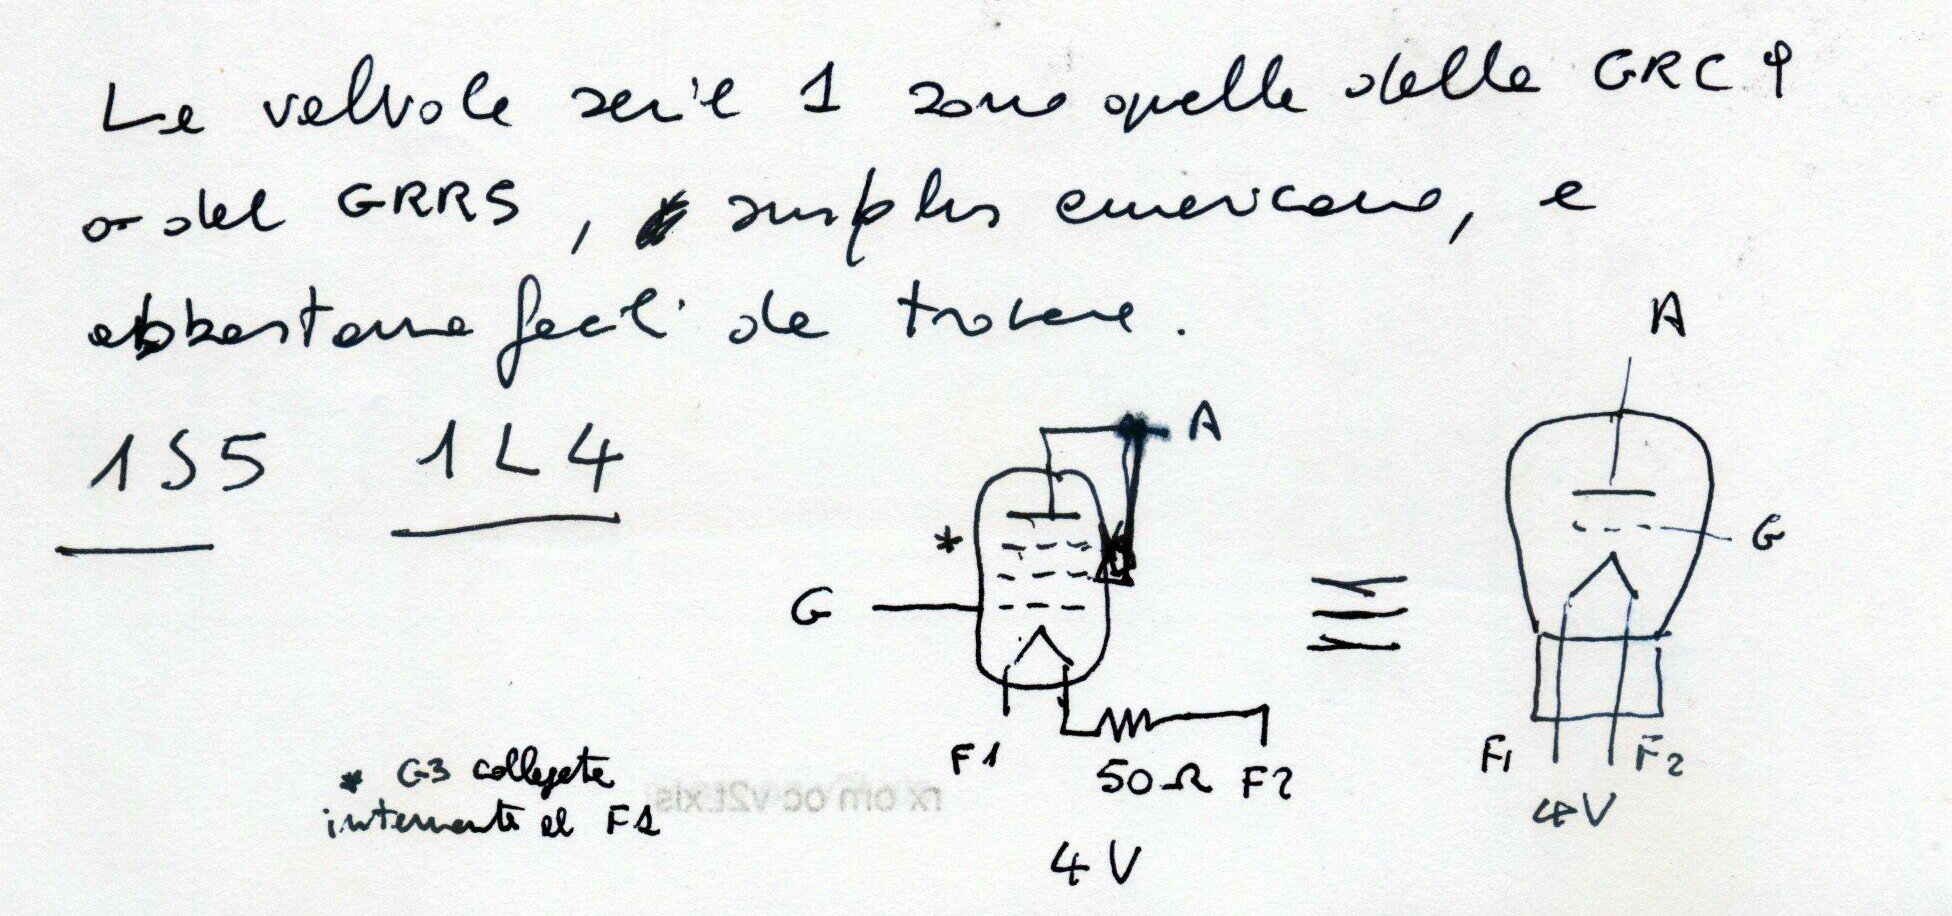 Le valvole serie 1 sono quelle della GRC 9
o del GRR5, surplus americano, e
abbastanza facili da trovare.
1S5 1L4
A
A
*
G
G
F1
50Ω F2
F1 F2
4V
* G3 collegata
internamente al F1
4V
rx om oc v2t.xls